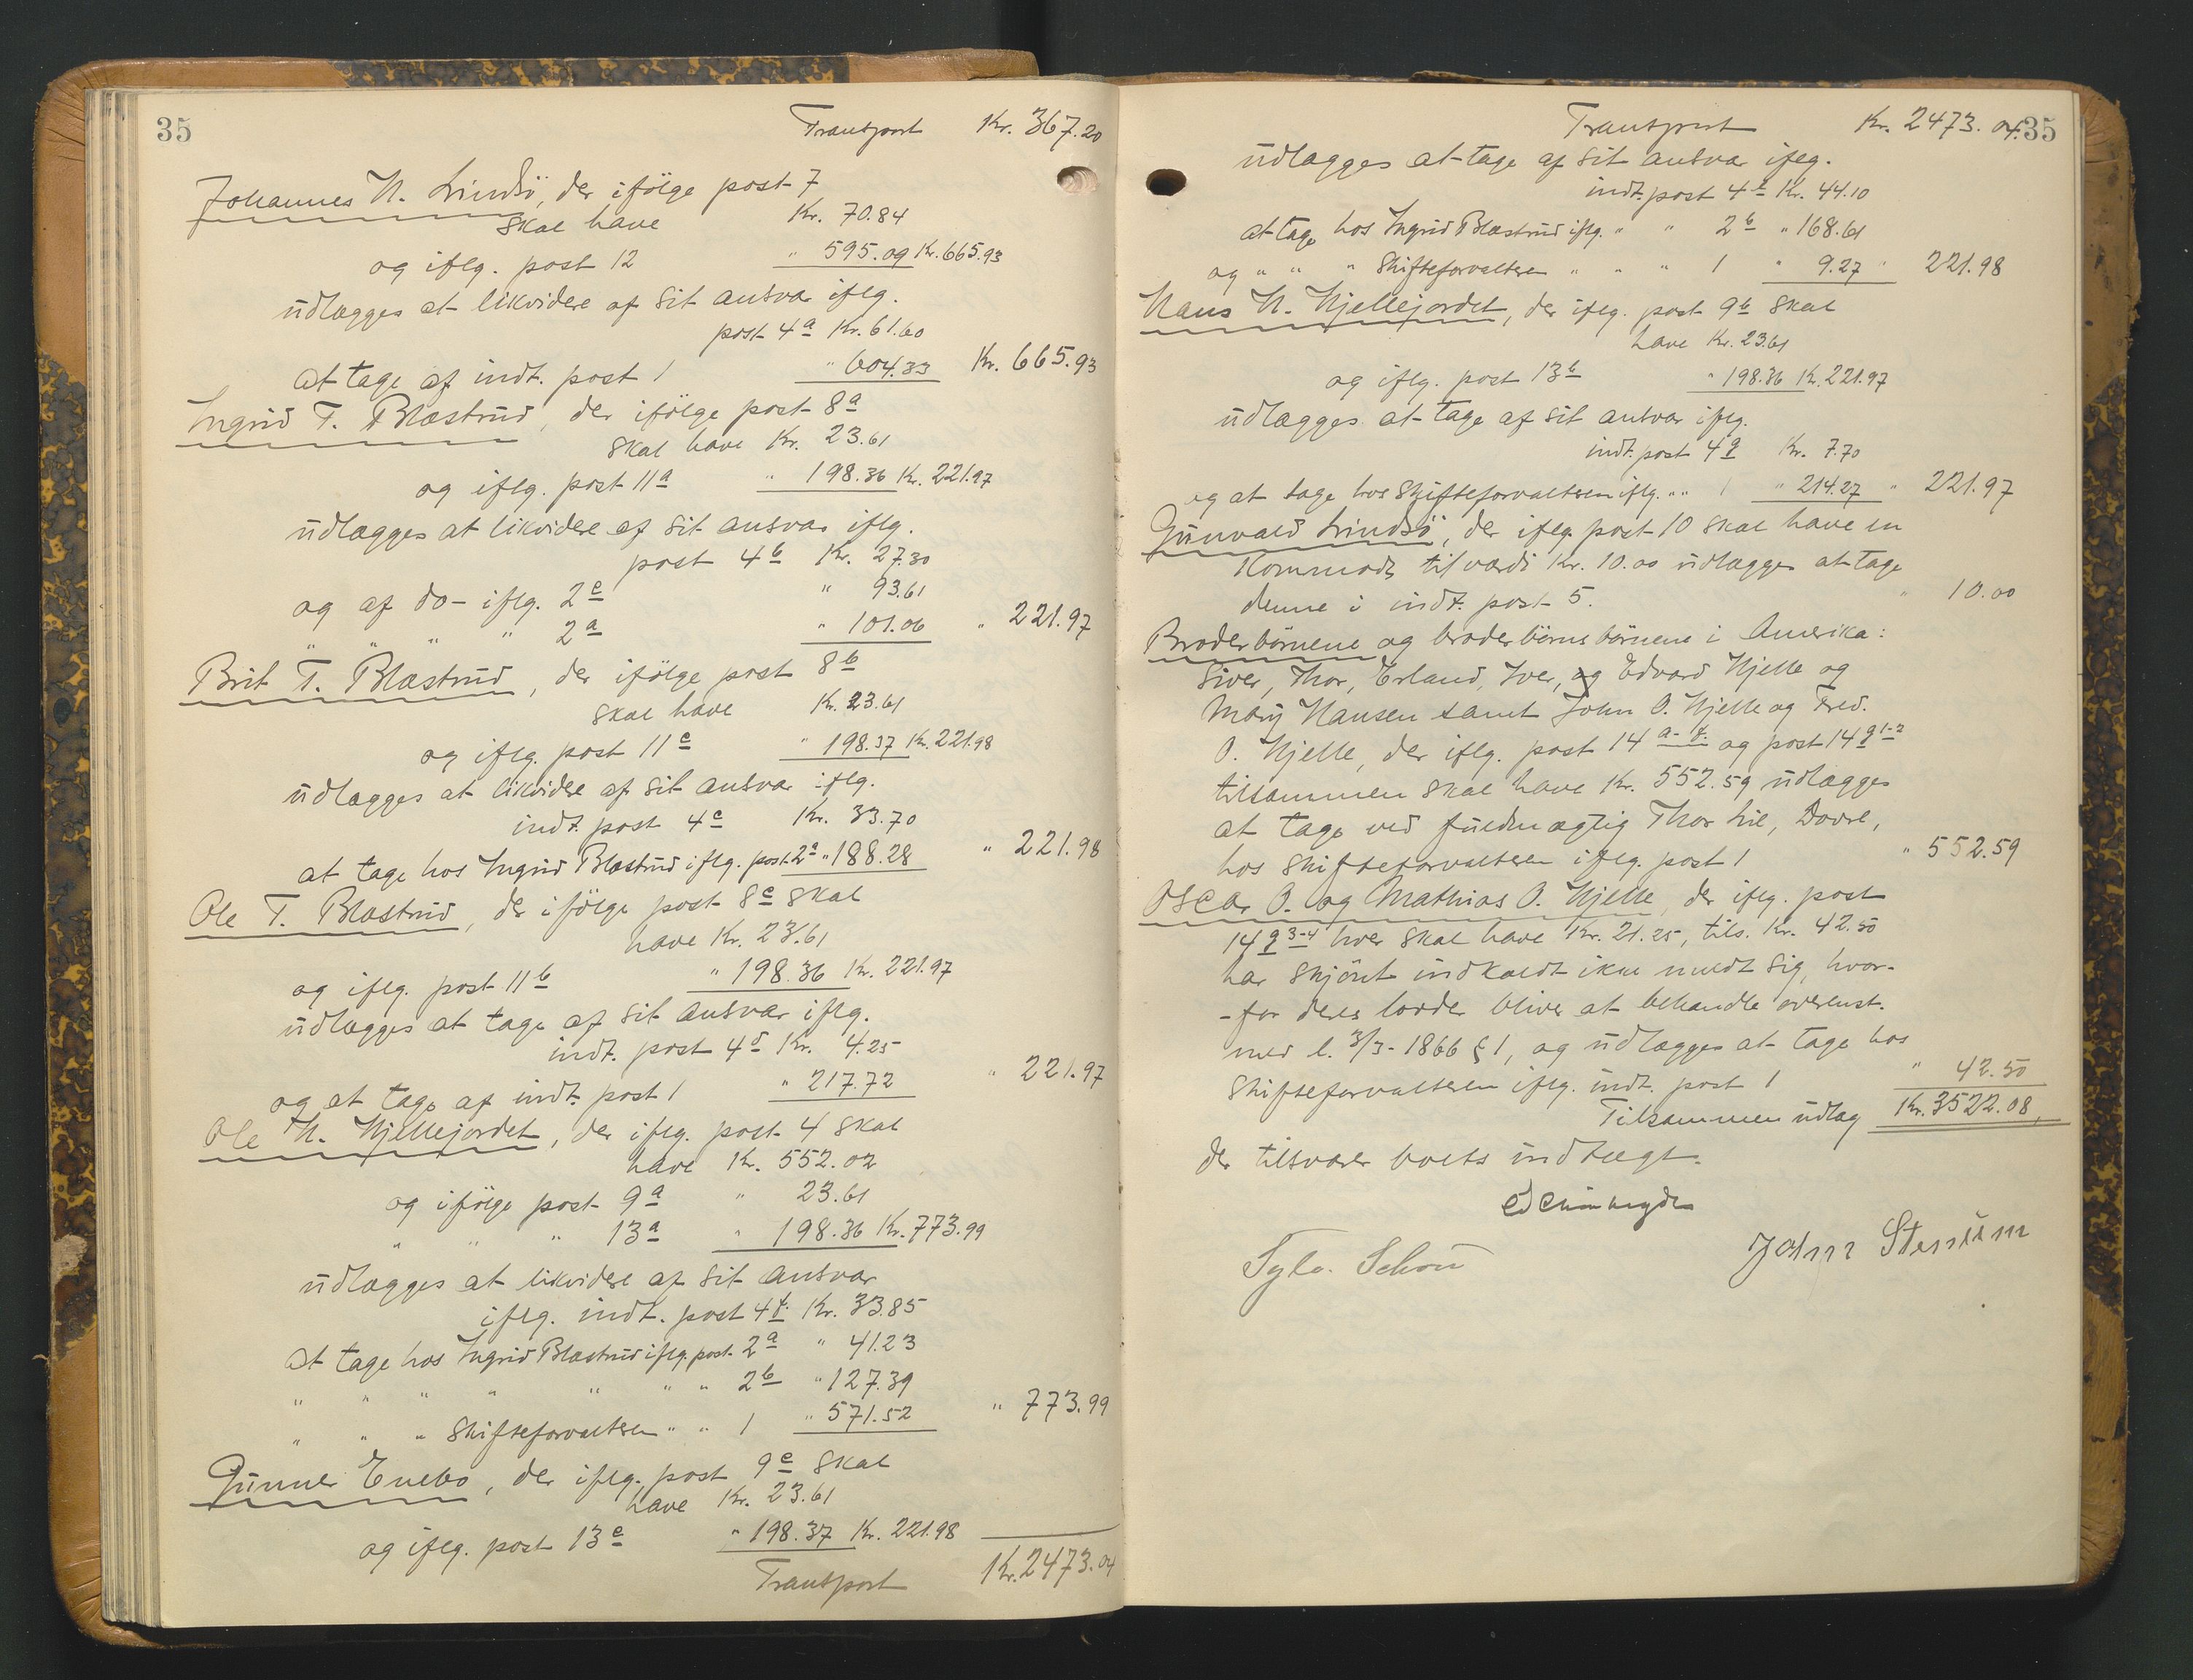 35
Transport Kr. 367.20
Johannes N. Lindsö, der ifölge post 7
skal have Kr. 70.84
og iflg. post 12 " 595.09 Kr. 665.93
üdlægges at likvidere af sit ansvar iflg.
post 4a Kr. 61.60
at tage af indt. post 1 " 604.33 Kr. 665.93
Ingrid T. Blæstrüd, der ifölge post 8a
skal have Kr. 23.61
og iflg. post 11a " 198.36 Kr. 221.97
üdlægges at likvidere af sit ansvar iflg.
post 4b Kr. 27.30
og af do- iflg. 2c " 93.61
" " " 2a " 101.06 " 221.97
Brit T. Blæstrüd, der ifölge post 8b
skal have Kr. 23.61
og iflg. post 11c " 198.37 Kr. 221.98
üdlægges at likvidere af sit ansvar iflg.
indt. post 4c Kr. 33.70
at tage hos Ingrid Blæstrüd iflg. post. 2a " 188.28 " 221.98
Ole T. Blæstrüd, der ifölge post 8c skal
have Kr. 23.61
og iflg. post 11b " 198.36 Kr. 221.97
üdlægges at tage af sit ansvar iflg.
indt. post 4d Kr. 4.25
og at tage af indt. post 1 " 217.72 " 221.97
Ole N. Hjellejordet, der iflg. post 4 skal
have Kr. 552.02
og ifölge post 9a " 23.61
" " " 13a " 198.36 Kr. 773.99
üdlægges at likvidere af sit ansvar
iflg. indt. post 4f. Kr. 33.85
at tage hos Ingrid Blæstrüd iflg. post. 2a " 41.23
" " " " " " " 2b " 127.39
" " " Skifteforvalteren " " 1 " 571.52 " 773.99
Günner Enebo, der iflg. post 9c skal
have Kr. 23.61
og iflg. post 13c " 198.37 Kr. 221.98
Transport Kr. 2473.04
35
Transport Kr. 2473.04
üdlægges at tage af sit ansvar iflg.
indt. post 4e Kr. 44.10
at tage hos Ingrid Blæstrüd iflg. " " 2b " 168.61
og " " " Skifteforvalteren " " " 1 " 9.27 " 221.98
Hans N. Hjellejordet, der iflg. post 9b skal
have Kr. 23.61
og iflg. post 13b " 198.36 Kr. 221.97
üdlægges at tage af sit ansvar iflg.
indt. post 4g Kr. 7.70
og at tage hos Skifteforvalteren iflg. " " 1 " 214.27 " 221.97
Günvald Lindsö, der iflg. post 10 skal have en
Kommode til værdi Kr. 10.00 üdlægges at tage
denne i indt. post 5. " 10.00
Broderbörnene og broderbörnsbörnene i Amerika:
Siver, Thor, Erland, Iver, og Edvard Hjelle og
Mary Hansen samt John O. Hjelle og Fred.
O. Hjelle, der iflg. post 14 a-f. og post 14 g 1-2
tilsammen skal have Kr. 552.59 üdlægges
at tage ved füldmægtig Thor Lie, Dovre,
hos skifteforvalteren iflg. post 1 " 552.59
Oscar O. og Mathias O. Hjelle, der iflg. post
14 g 3-4 hver skal have Kr. 21.25, tils. Kr. 42.50
har skjönt indkaldt ikke meldt sig, hvor-
-for deres lodder bliver at behandle overenst.
med l. 3/3-1866 § 1, og üdlægges at tage hos
Skifteforvalteren iflg. indt. post 1 " 42.50
Tilsammen üdlag Kr. 3522.08,
der tilsvarer boets indtægt.
Sylv. Schou
John Stenüm